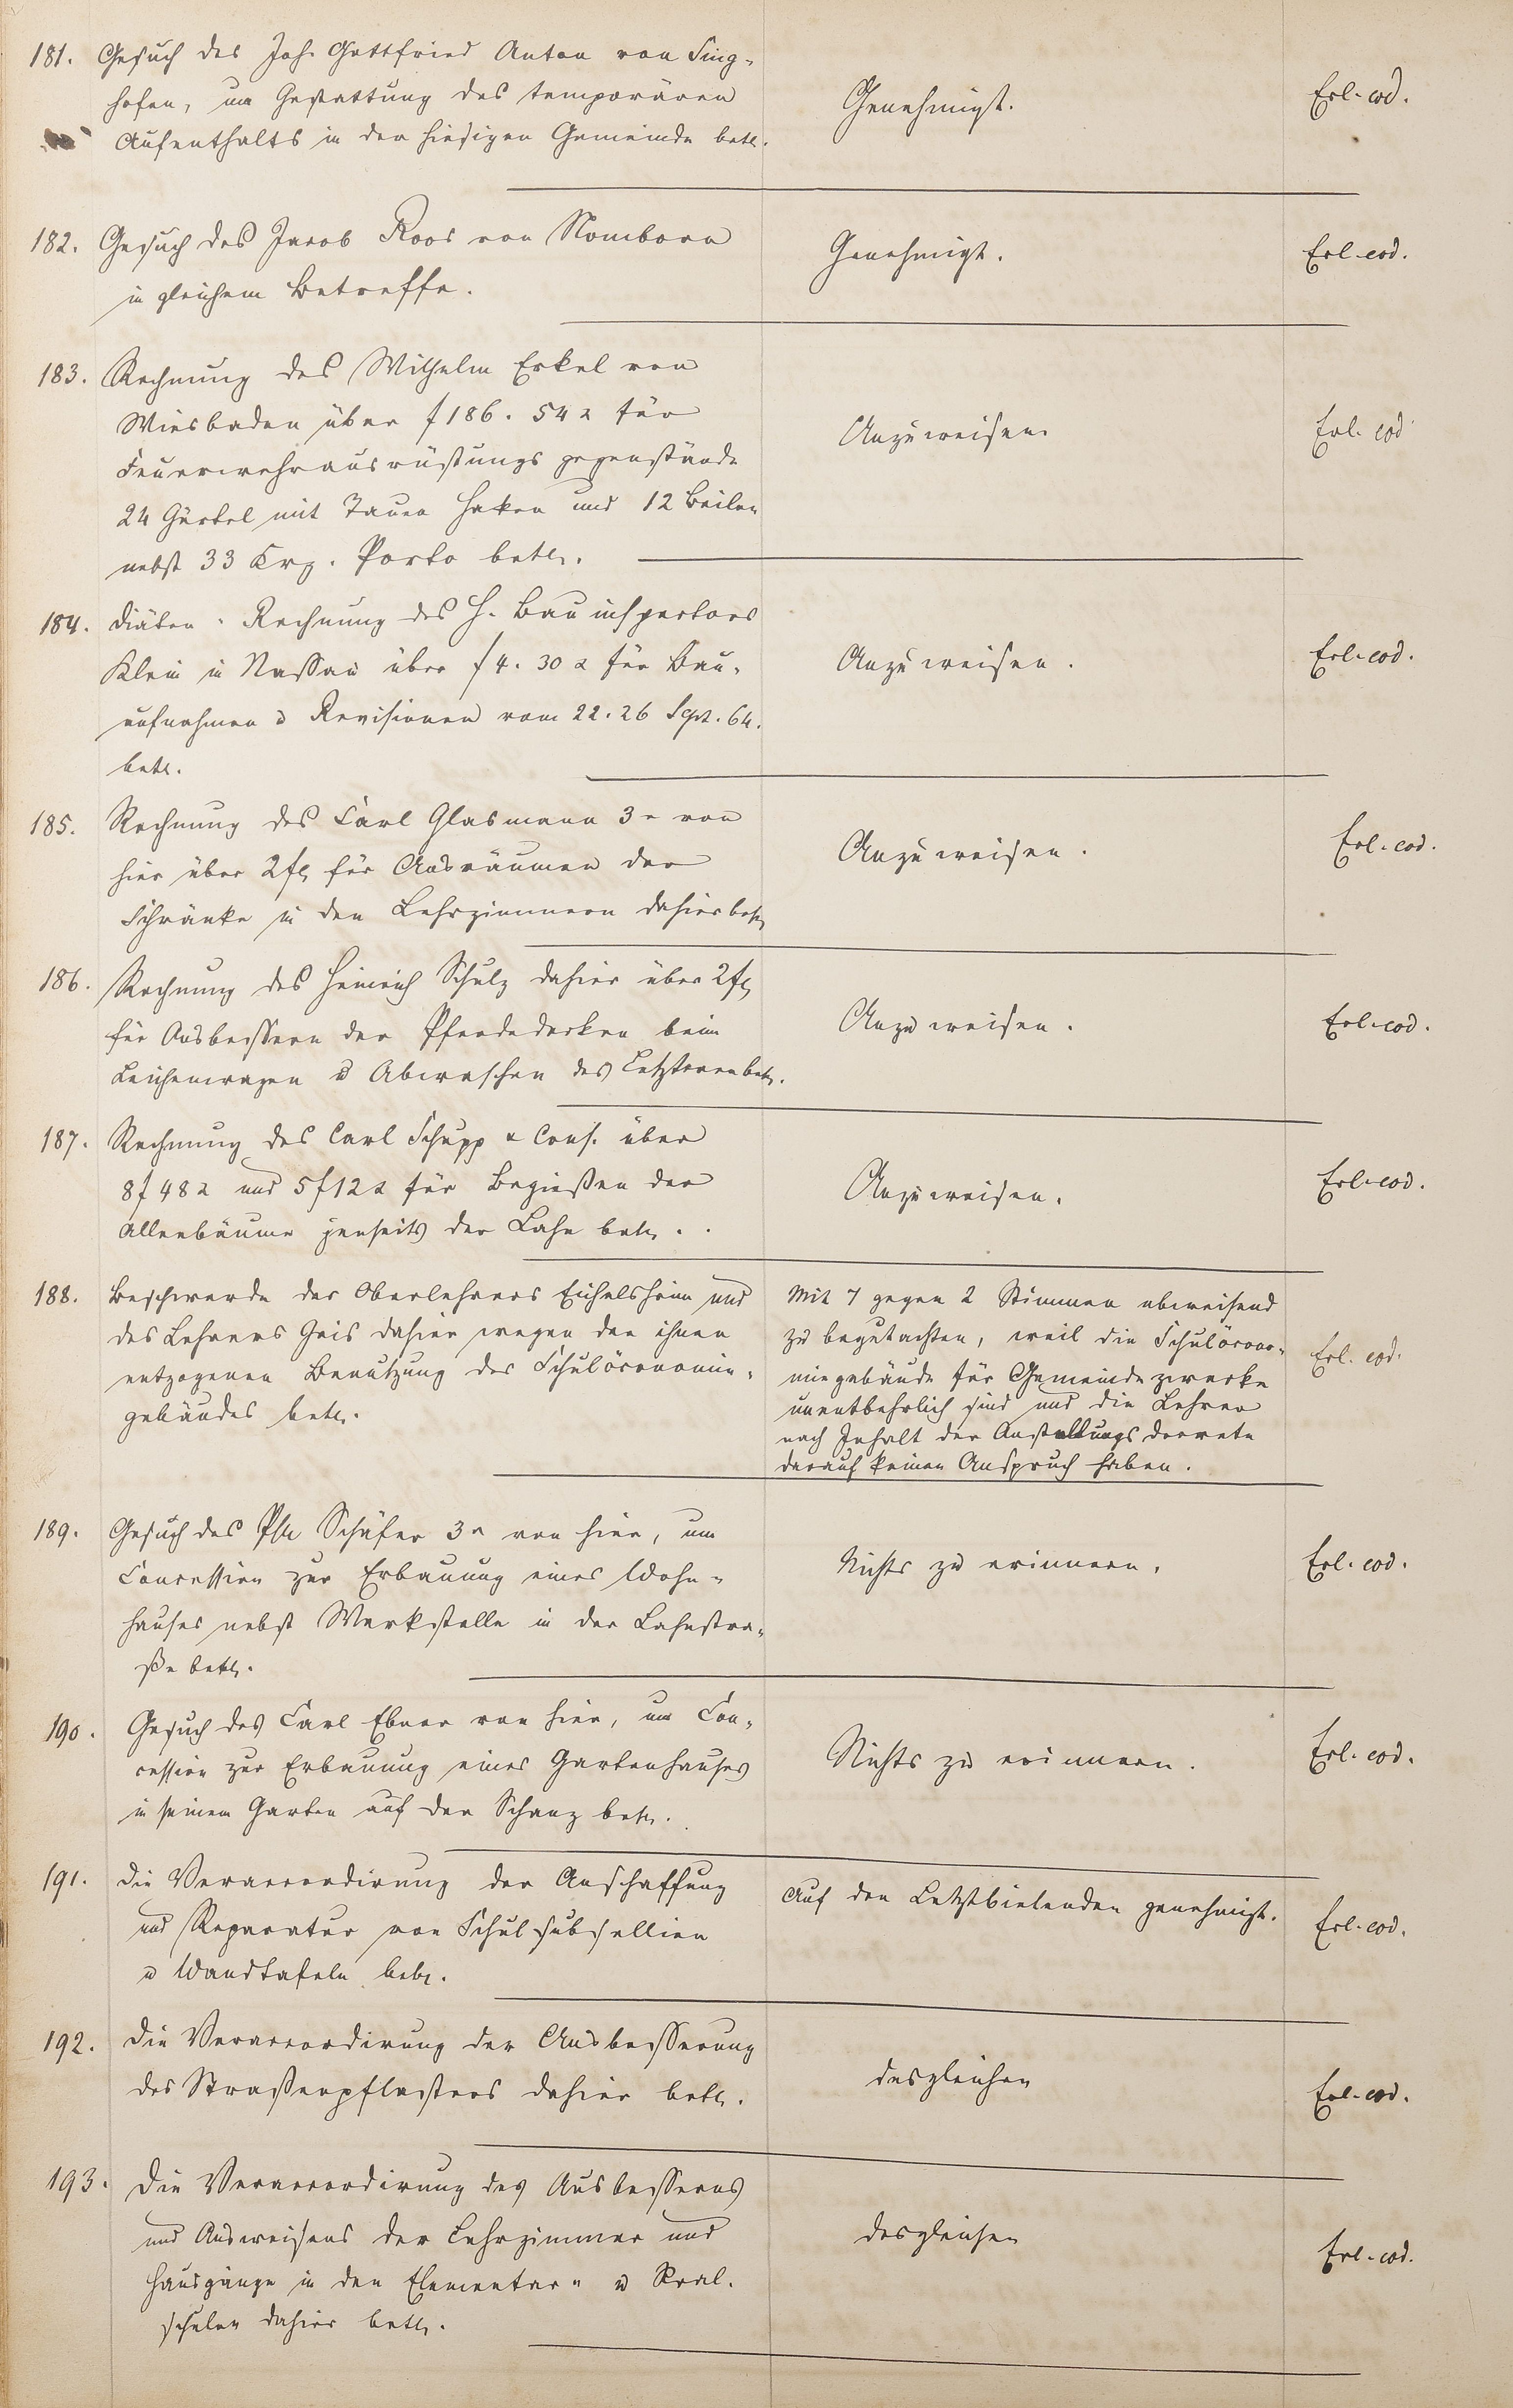 181. Gesuch des Joh. Gottfried Anton von Sing-
hofen, um Gestattung des temporären
Aufenthalts in der hiesigen Gemeinde betr.
Genehmigt.
Erl. eod.
182. Gesuch des Jacob Roos von Nomborn
in gleichem Betreffe.
Genehmigt.
Erl. eod.
183. Rechnung des Wilhelm Erkel von
Wiesbaden über f 186. 54 x für
Feuerwehrausrüstungsgegenstände
24 Gürtel mit Tauen Haken und 12 Beilen
nebst 33 Krz. Porto betr.
Anzuweisen.
Erl. eod
184. Diäten-Rechnung des H. Bauinspectors
Klein in Nassau über f 4. 30 x für Bau-
aufnahmen u Revisionen vom 22. 26 Sept. 64.
betr.
Anzuweisen.
Erl. eod.
185. Rechnung des Carl Glasmann 3r von
hier über 2 fl für Ausräumen der
Schränke in den Lehrzimmern dahier betr
Anzuweisen.
Erl. eod.
186. Rechnung des Heinrich Schulz dahier über 2 fl
für Ausbessern der Pferdedecken beim
Leichenwagen u Abwaschen des Letzteren betr.
Anzuweisen.
Erl. eod.
187. Rechnung des Carl Schupp & Cons. über
8 f 48 x und 5 f 12 x für Begießen der
Alleebäume jenseits der Lahn betr.
Anzuweisen.
Erl. eod.
188. Beschwerde des Oberlehrers Eichelsheim und
des Lehrers Geis dahier wegen der ihnen
entzogenen Benutzung des Schulöconomie-
gebäudes betr.
Mit 7 gegen 2 Stimmen abweisend
zu begutachten, weil die Schulöcono-
miegebäude für Gemeindezwecke
unentbehrlich sind und die Lehrer
nach Inhalt der Anstellungsdecrete
darauf keinen Anspruch haben.
Erl. eod.
189. Gesuch des Ph. Schäfer 3r von hier, um
Concession zur Erbauung eines Wohn-
hauses nebst Werkstelle in der Lahnstra-
ße betr.
Nichts zu erinnern.
Erl. eod.
190. Gesuch des Carl Ebner von hier, um Con-
cession zur Erbauung eines Gartenhauses
in seinem Garten auf der Schanz betr.
Nichts zu erinnern.
Erl. eod.
191. Die Veraccordirung der Anschaffung
und Reparatur von Schulsubsellien
u Wandtafeln betr.
Auf den Letztbietenden genehmigt.
Erl. eod.
192. Die Veraccordirung der Ausbesserung
des Straßenpflasters dahier betr.
desgleichen
Erl. eod.
193. Die Veraccordirung des Ausbesserns
und Ausweisens der Lehrzimmer und
Hausgänge in den Elementar- u Real-
schulen dahier betr.
desgleichen
Erl. eod.